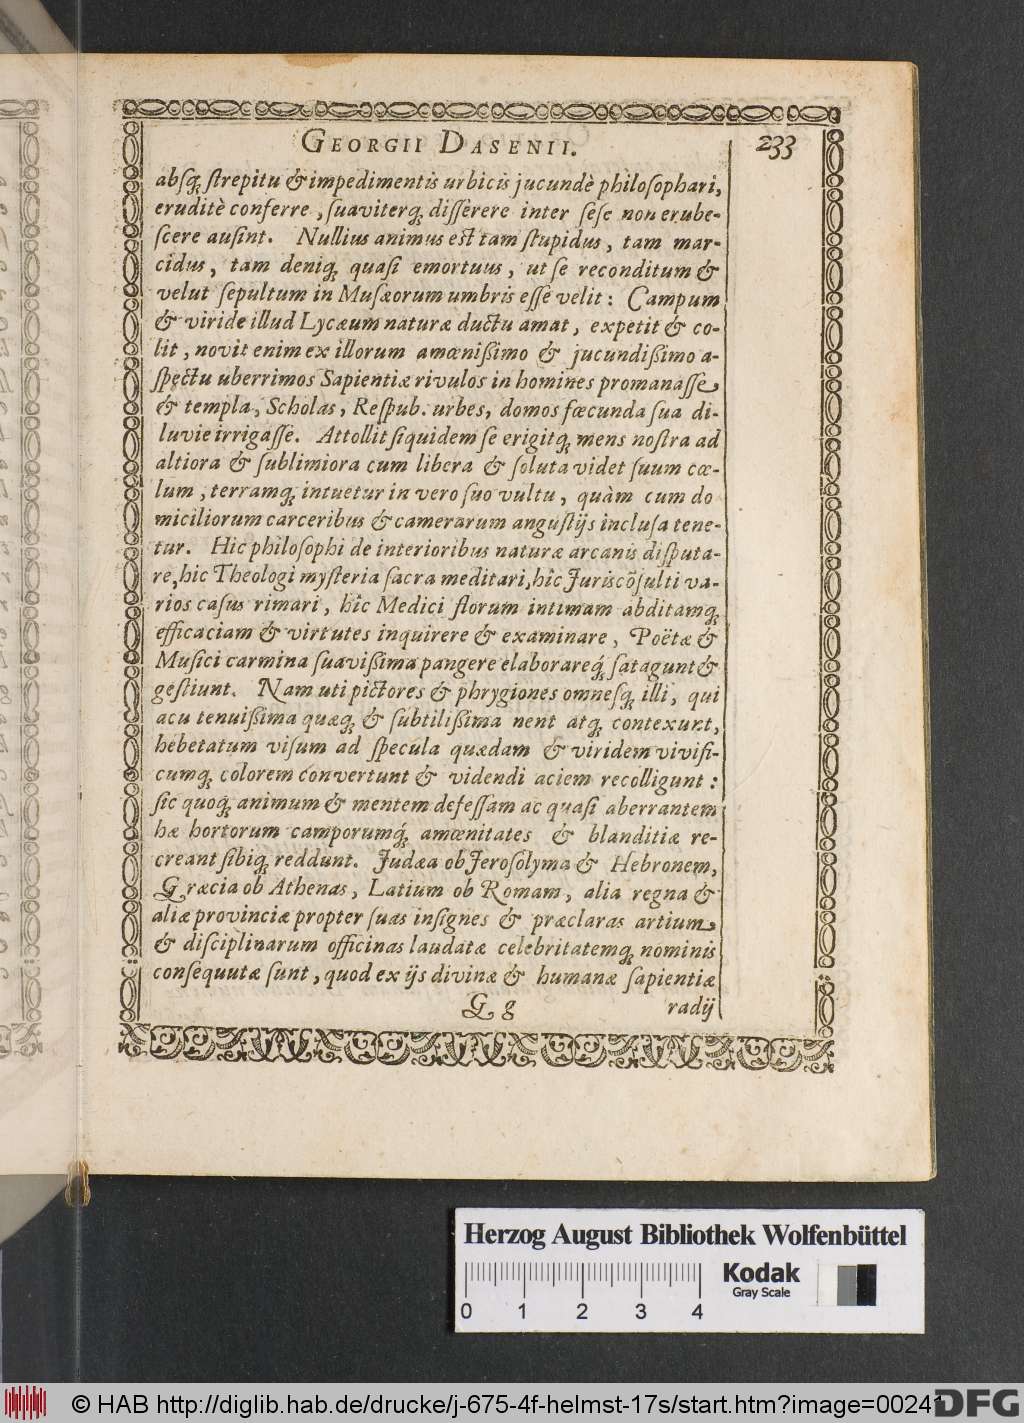 GEORGII DASENII. 233
absq́; ſtrepitu & impedimentis urbicis jucundè philoſophari,
eruditè conferre, ſuaviterq́; diſſerere inter ſeſe non erube-
ſcere auſint. Nullius animus eſt tam ſtupidus, tam mar-
cidus, tam deniq́; quaſi emortuus, ut ſe reconditum &
velut ſepultum in Muſæorum umbris eſſe velit: Campum
& viride illud Lycæum naturæ ductu amat, expetit & co-
lit, novit enim ex illorum amœnißimo & jucundißimo a-
ſpectu uberrimos Sapientiæ rivulos in homines promanaſſe
& templa, Scholas, Reſpub. urbes, domos fœcunda ſua di-
luvie irrigaſſe. Attollit ſiquidem ſe erigitq́; mens noſtra ad
altiora & ſublimiora cum libera & ſoluta videt ſuum cœ-
lum, terramq́; intuetur in vero ſuo vultu, quàm cum do
miciliorum carceribus & camerarum anguſtijs incluſa tene-
tur. Hîc philoſophi de interioribus naturæ arcanis diſputa-
re, hîc Theologi myſteria ſacra meditari, hîc Juriscõſulti va-
rios caſus rimari, hîc Medici florum intimam abditamq́;
efficaciam & virtutes inquirere & examinare, Poëtæ &
Muſici carmina ſuavißima pangere elaborareq́; ſatagunt &
geſtiunt. Nam uti pictores & phrygiones omneſq́; illi, qui
acu tenuißima quæq́; & ſubtilißima nent atq́; contexunt,
hebetatum viſum ad ſpecula quædam & viridem vivifi-
cumq́; colorem convertunt & videndi aciem recolligunt:
ſic quoq́; animum & mentem defeſſam ac quaſi aberrantem
hæ hortorum camporumq́; amœnitates & blanditiæ re-
creant ſibiq́; reddunt. Judæa ob Jeroſolyma & Hebronem,
Græcia ob Athenas, Latium ob Romam, alia regna &
aliæ provinciæ propter ſuas inſignes & præclaras artium
& diſciplinarum officinas laudatæ celebritatemq́; nominis
conſequutæ ſunt, quod ex ijs divinæ & humanæ ſapientiæ
G g radij
Herzog August Bibliothek Wolfenbüttel
0 1 2 3 4
Kodak
Gray Scale
© HAB http://diglib.hab.de/drucke/j-675-4f-helmst-17s/start.htm?image=00241
DFG